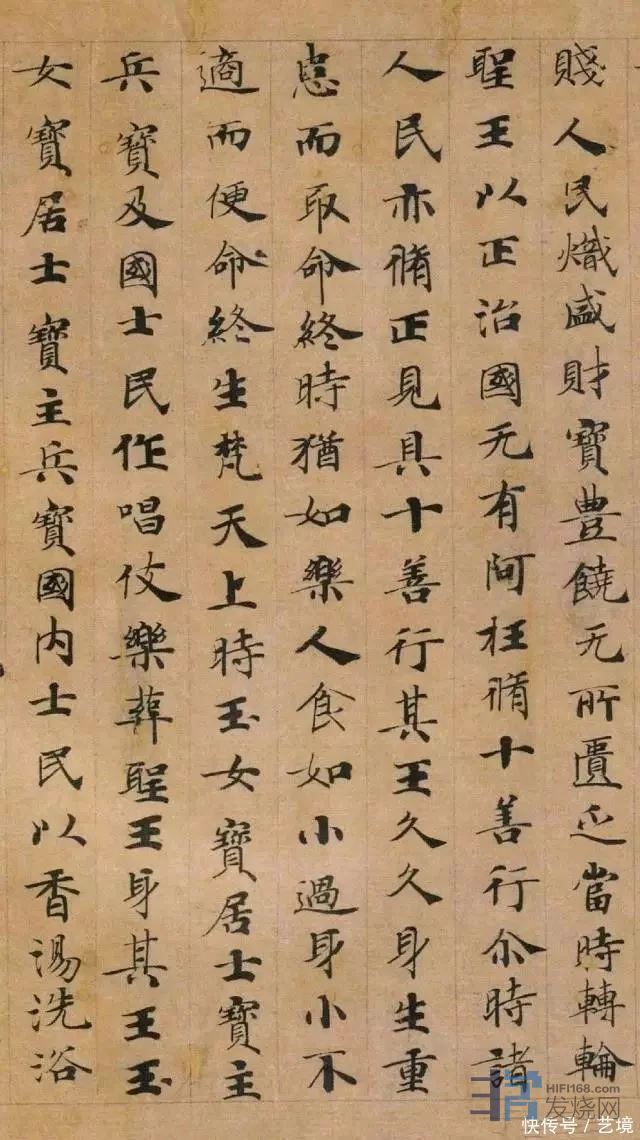 賤人民熾盛財寶豊饒无所匱乏當時轉輪
聖王以正治國无有阿枉脩十善行尒時諸
人民亦脩正見具十善行其王久久身生重
患而取命終時猶如樂人食如小過身小不
適而便命終生梵天上時玉女寶居士寶主
兵寶及國士民作唱伎樂葬聖王身其王玉
女寶居士寶主兵寶國内士民以香湯洗浴
HIFI168.com
发烧网
快传号/艺境